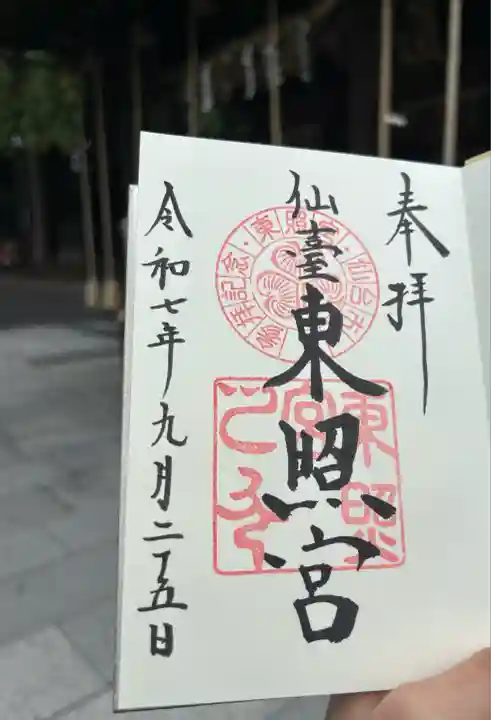 奉拝
仙臺東照宮
令和七年九月二十五日
東照宮
参拝記念・東照宮・仙台市